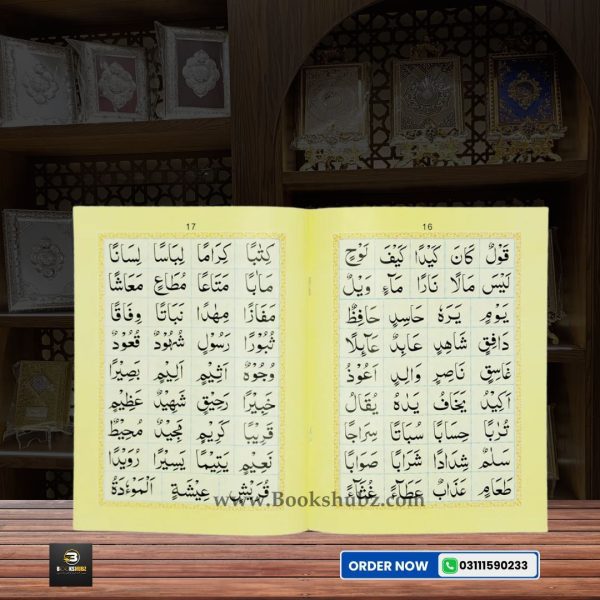 16
قَوْلٌ كَانَ كَيْدًا كَيْفَ لَوْحٍ
لَيْسَ مَالًا نَارًا مَآءٍ وَيْلٌ
يَوْمٍ يَرَهٗ حَاسِدٍ حَافِظٌ
دَافِقٍ شَاهِدٍ عَابِدٌ عَآئِلًا
غَاسِقٍ نَاصِرٍ وَالِدٍ اَعُوْذُ
اَكِيْدُ يَخَافُ يَدَهُ يُقَالُ
تُرٰبًا حِسَابًا سُبَاتًا سِرَاجًا
سَلٰمٌ شِدَادًا شَرَابًا صَوَابًا
طَعَامٍ عَذَابٌ عَطَآءً غُثَآءً
17
كِتٰبًا كِرَامًا لِبَاسًا لِسَانًا
مَاٰبًا مَتَاعًا مُطَاعٍ مَعَاشًا
مَفَازًا مِهٰدًا نَبَاتًا وِفَاقًا
ثُبُوْرًا رَسُوْلٍ شُهُوْدٌ قُعُوْدٌ
وُجُوْهٌ اَثِيْمٍ اَلِيْمٍ بَصِيْرًا
خَبِيْرًا رَحِيْقٍ شَهِيْدٌ عَظِيْمٍ
قَرِيْبًا كَرِيْمٍ مَجِيْدٌ مُحِيْطٌ
نَعِيْمٍ يَتِيْمًا يَسِيْرًا رُوَيْدًا
قُرَيْشٍ عِيْشَةٍ اَلْمَوْءٗدَةُ
www.Bookshubz.com
BOOKSHUBZ
ORDER NOW 03111590233